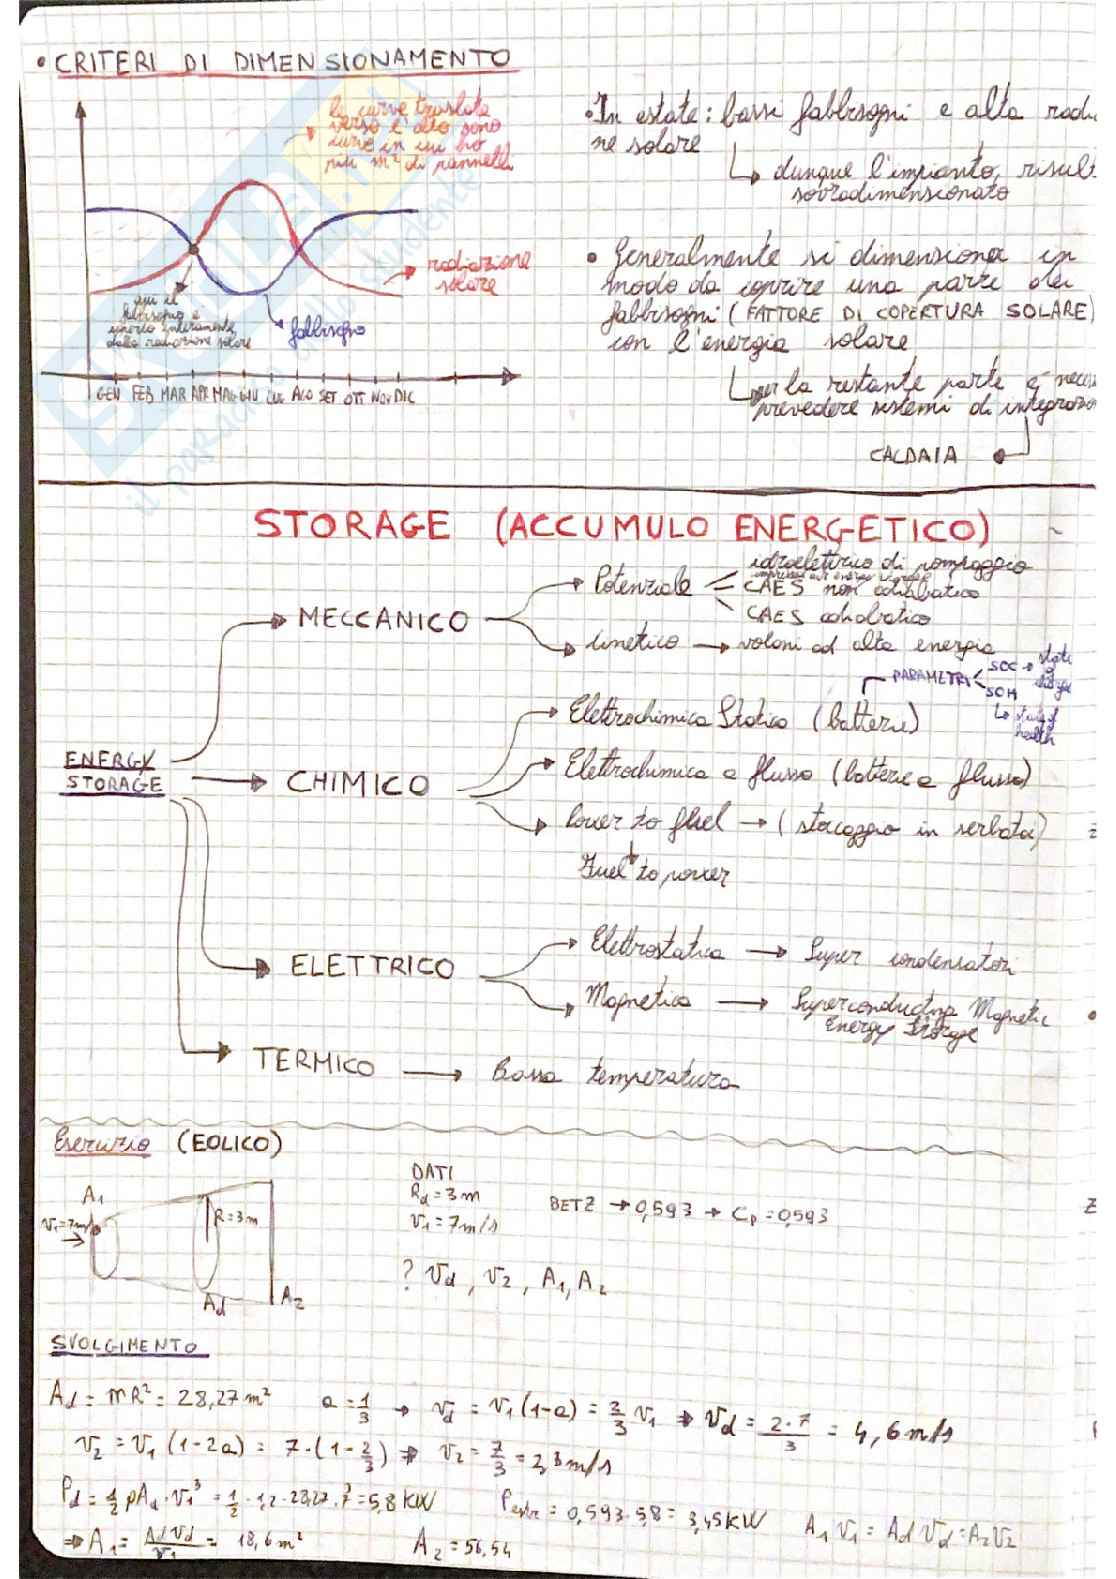 • CRITERI DI DIMENSIONAMENTO
le curve traslate
verso l'alto sono
curve in cui ho
più m² di pannelli
radiazione
solare
qui il
fabbisogno è
coperto interamente
dalla radiazione solare
fabbisogno
GEN FEB MAR APR MAG GIU LUG AGO SET OTT NOV DIC
• In estate: bassi fabbisogni e alta
ne solare
dunque l'impianto
sovradimensionato
• Generalmente si dimensiona in
modo da coprire una parte dei
fabbisogni (FATTORE DI COPERTURA SOLARE)
con l'energia solare
per la restante parte è
prevedere sistemi di
CALDAIA
STORAGE (ACCUMULO ENERGETICO)
ENERGY
STORAGE
MECCANICO
Potenziale
idroelettrico di pompaggio
CAES non adiabatico
CAES adiabatico
Cinetico → volani ad alta energia
PARAMETRI
SOC → state
of
charge
SOH
↳ state of
health
CHIMICO
Elettrochimica Statica (batterie)
Elettrochimica a flusso (batterie a flusso)
Power to fluel → (stoccaggio in serbatoi)
Fuel to power
ELETTRICO
Elettrostatica → Super condensatori
Magnetica → Superconducting Magnetic
Energy Storage
TERMICO → Bassa temperatura
Esercizio (EOLICO)
A₁
v₁=7m/s
R=3m
A_d
A₂
DATI
R_d = 3 m
v₁ = 7 m/s
BETZ → 0,593 → C_p = 0,593
? v_d, v₂, A₁, A₂
SVOLGIMENTO
A_d = πR² = 28,27 m² a = 1/3 → v_d = v₁(1-a) = 2/3 v₁ ⇒ v_d = 2·7/3 = 4,6 m/s
v₂ = v₁(1-2a) = 7·(1-2/3) ⇒ v₂ = 7/3 = 2,3 m/s
P_d = 1/2 ρA_d·v₁³ = 1/2·1,2·28,27·7³ = 5,8 KW P_estr = 0,593·5,8 = 3,45 KW A₁v₁ = A_d v_d = A₂v₂
⇒ A₁ = A_d v_d/v₁ = 18,6 m² A₂ = 56,54